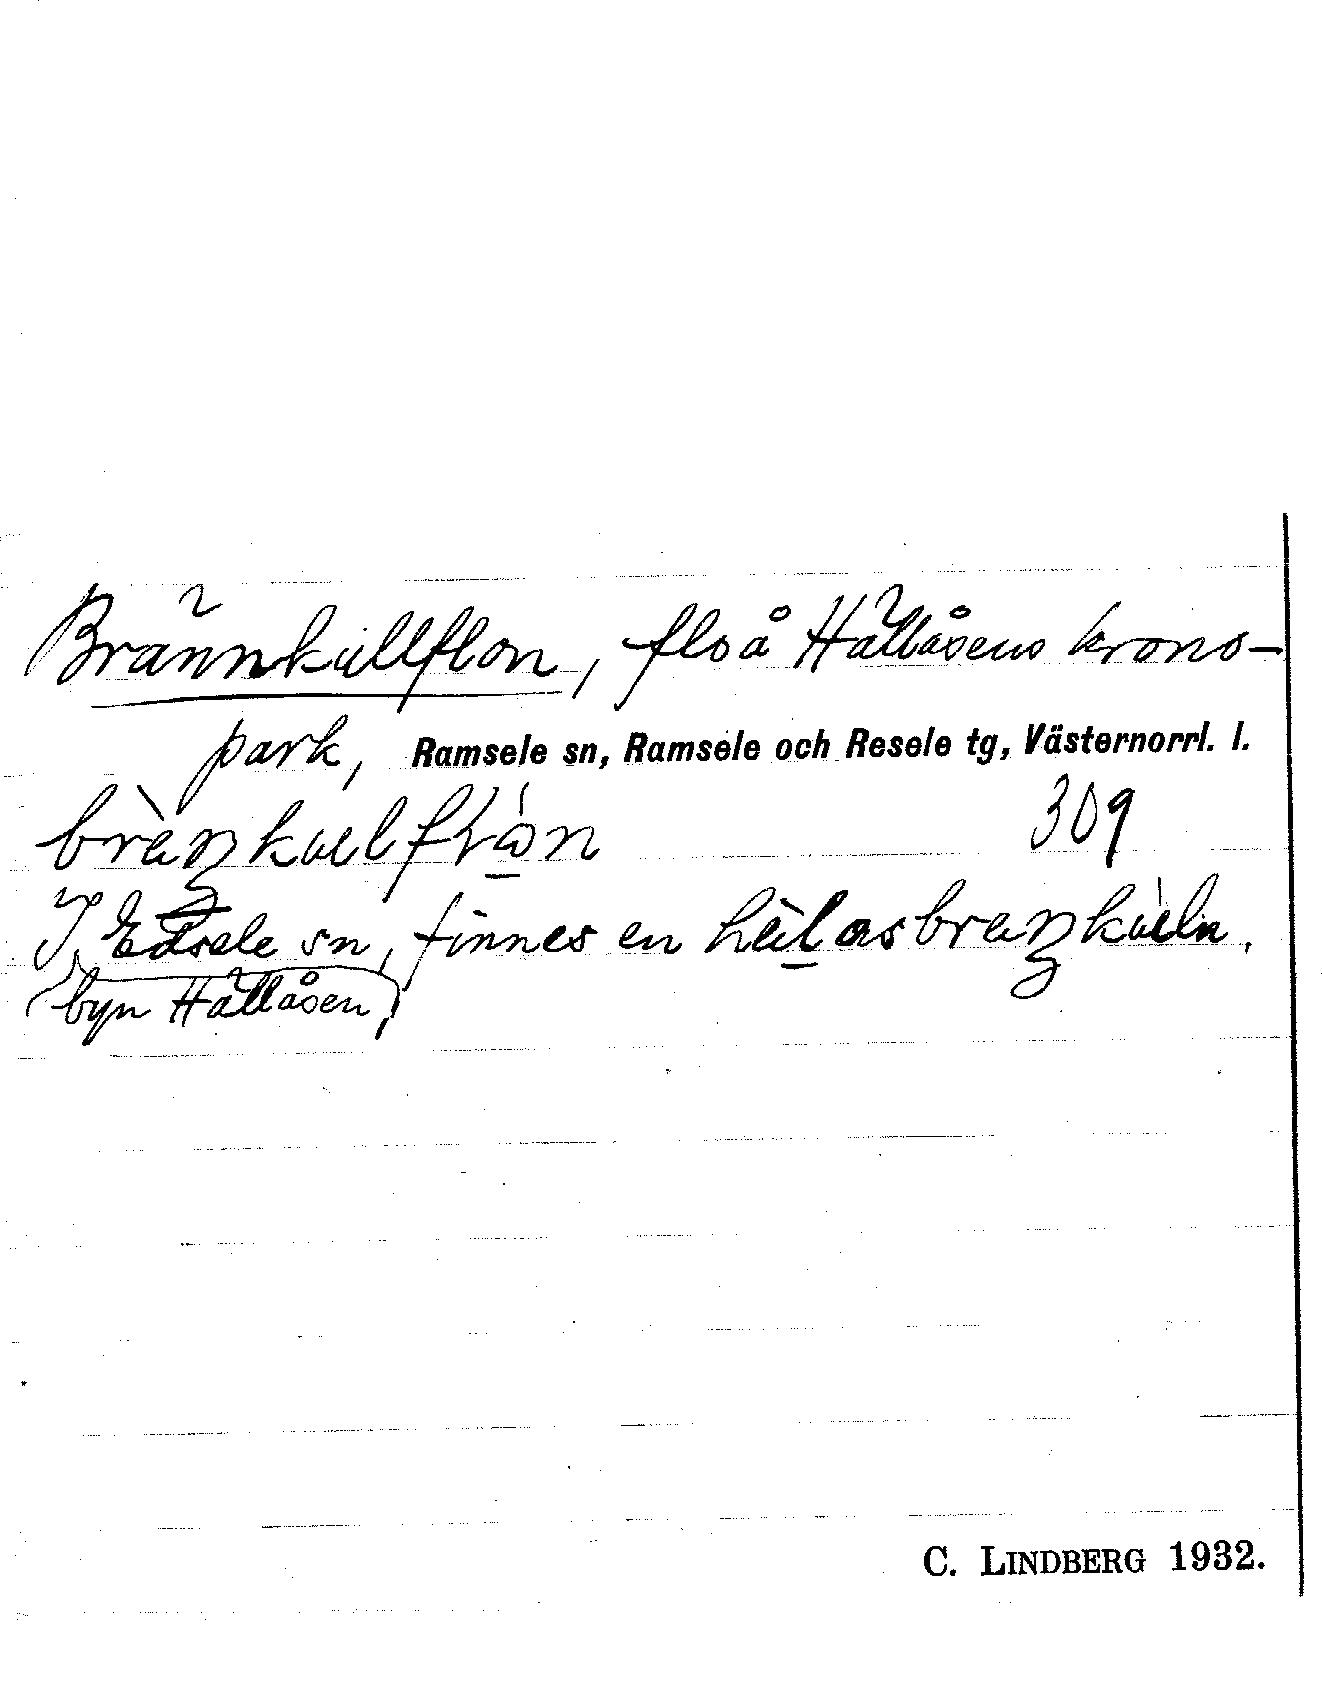 Brännkullflon, flo å Hällåsens krono-
park, Ramsele sn, Ramsele och Resele tg, Västernorrl. l.
309
I Edsele sn, finnes en
(byn Hällåsen,)
C. LINDBERG 1932.